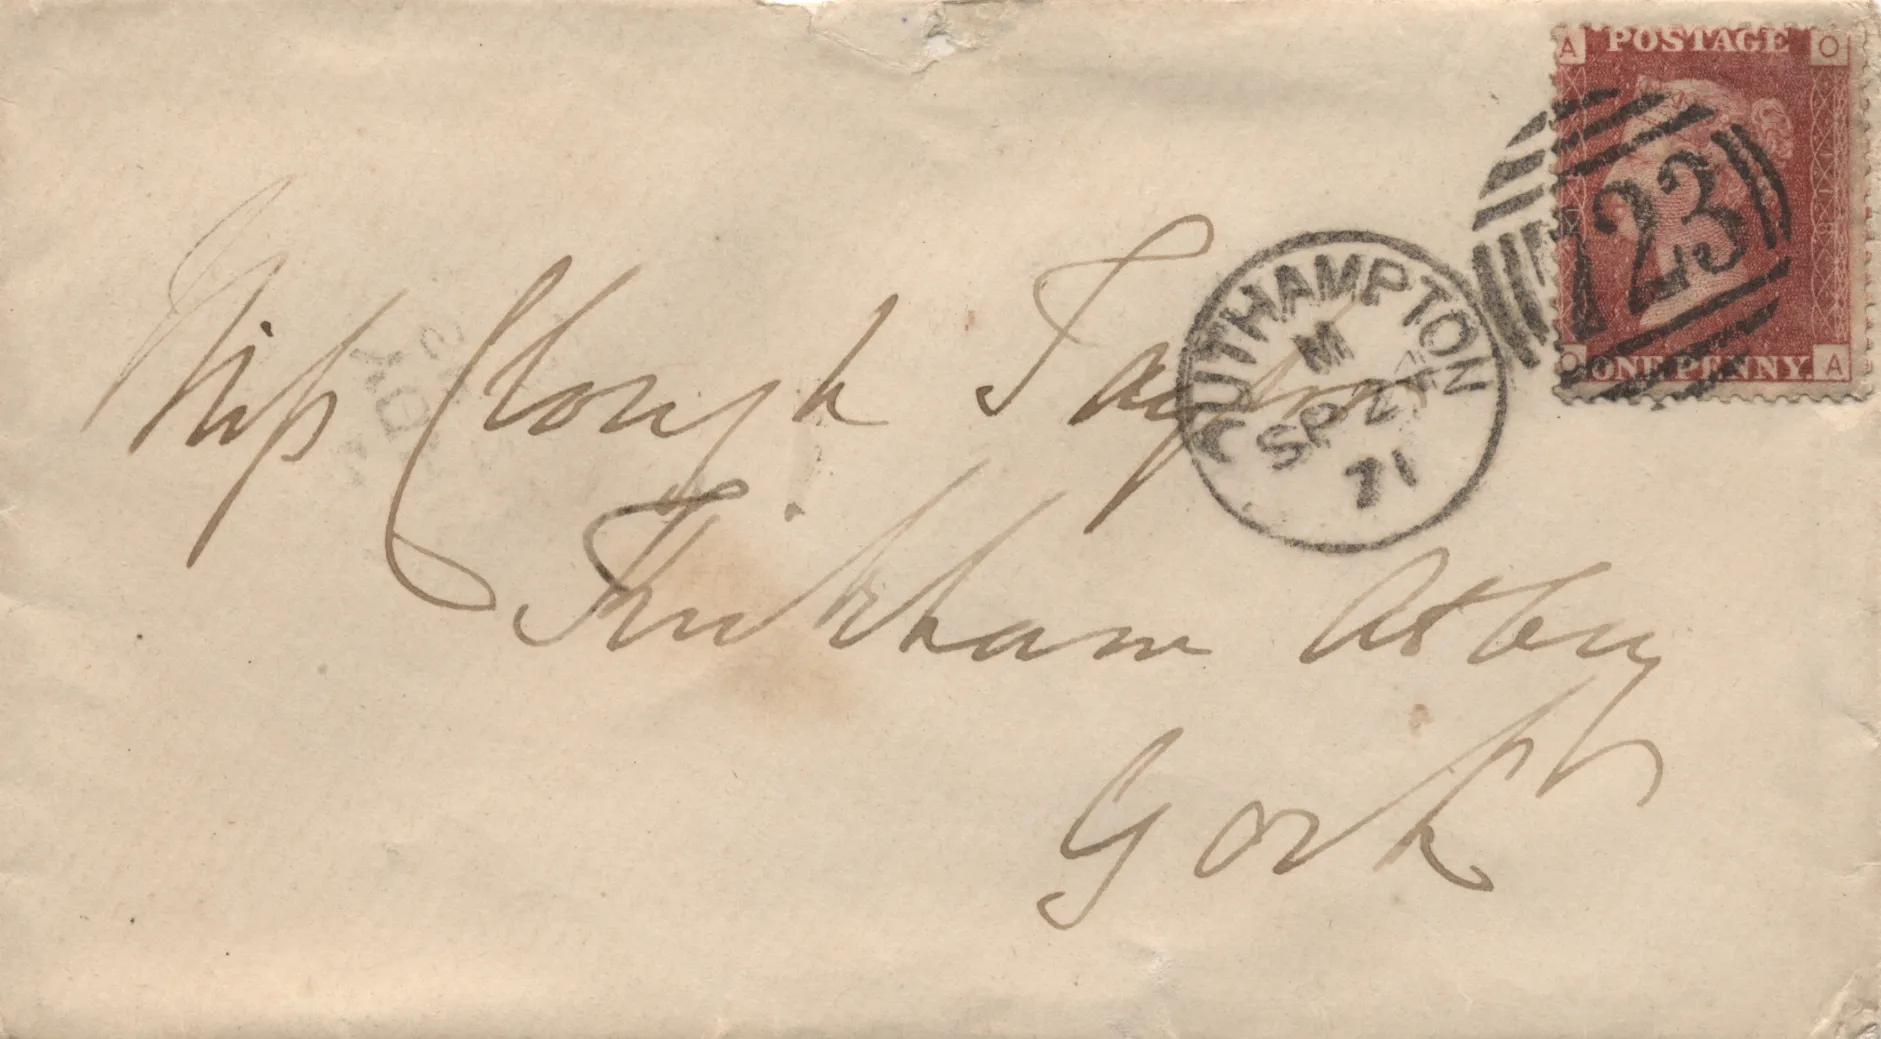 A POSTAGE O
723
O ONE PENNY. A
SOUTHAMPTON
M
SP 24
71
Miss Clough Taylor
Firkham Abbey
York